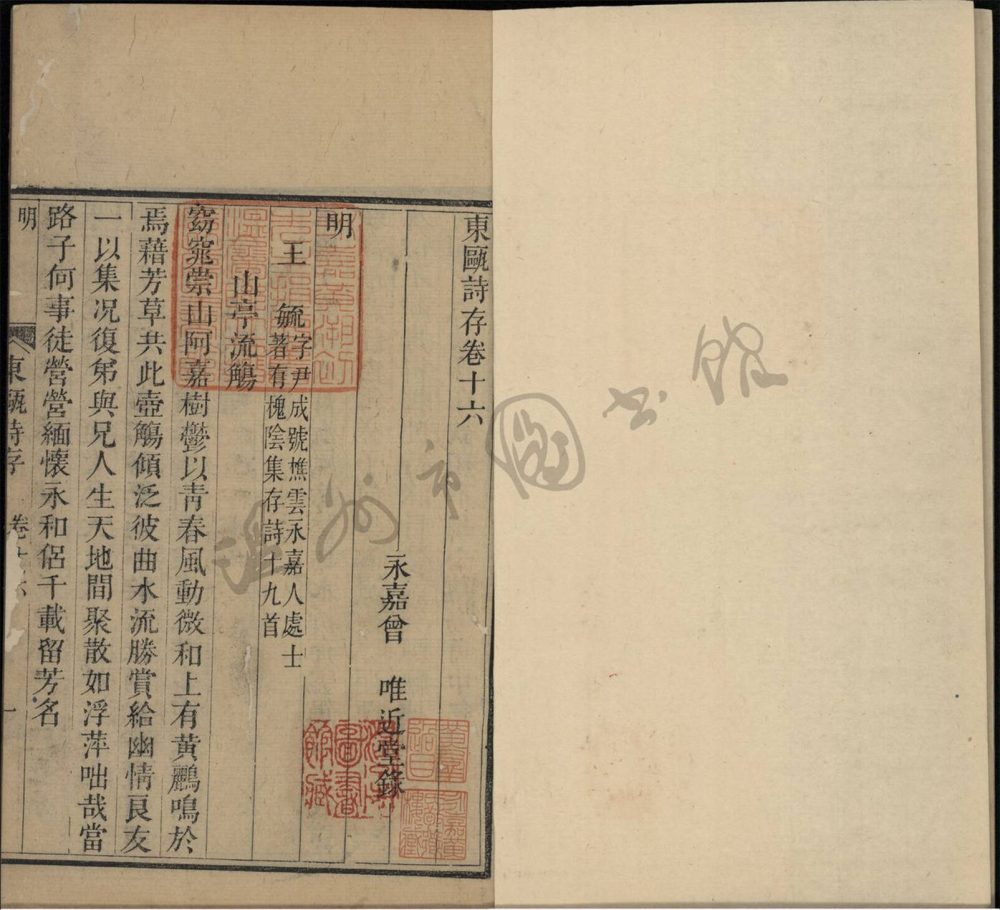 東甌詩存卷十六
永嘉曾　唯近堂錄
明
王　毓字尹成號樵雲永嘉人處士
著有槐陰集存詩十九首
山亭流觴
窈窕崇山阿嘉樹鬱以青春風動微和上有黃鸝鳴於
焉藉芳草共此壺觴傾泛彼曲水流勝賞給幽情良友
一以集况復弟與兄人生天地間聚散如浮萍咄哉當
路子何事徒營營緬懷永和侶千載留芳名
明
東甌詩存
卷十六
一
溫州市圖書館